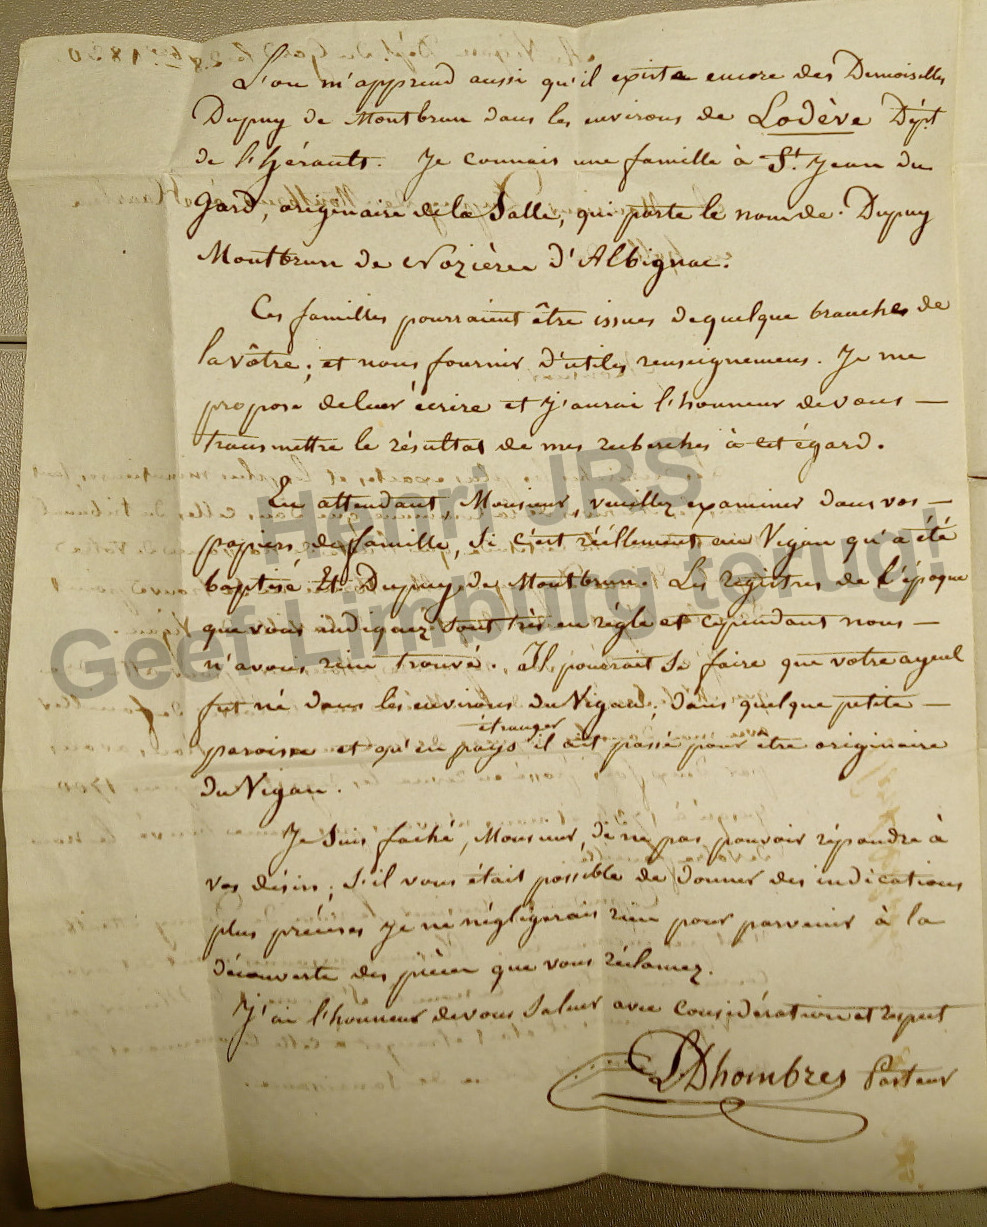 L'on m'apprend aussi qu'il existe encore des Demoiselles
Dupuy de Montbrun dans les environs de Lodève Dépt
de l'hérault. Je connais une famille à St. Jean du
Gard, originaire de la Salle, qui porte le nom de Dupuy
Montbrun de Nozières d'Albignac.
Ces familles pourraient être issues de quelque branches de
la vôtre; et nous fournir d'utiles renseignemens. Je me
propose de leur écrire et j'aurai l'honneur de vous —
transmettre le résultat de mes recherches à cet égard.
En attendant, Monsieur, veuillez examiner dans vos —
papiers de famille, si c'est réellement au Vigan qu'a été
baptisé Et. Dupuy de Montbrun. Les registres de l'époque
que vous indiquez sont très en règle et cependant nous —
n'avons rien trouvé. Il pourrait se faire que votre ayeul
fut né dans les environs du Vigan, dans quelque petite —
paroisse et qu'en pays étranger il ait passé pour être originaire
du Vigan.
Je suis faché, Monsieur, de ne pas pouvoir répondre à
vos désirs; s'il vous était possible de donner des indications
plus précises je ne négligerais rien pour parvenir à la
découverte des pièces que vous réclamez.
J'ai l'honneur de vous saluer avec considération et respect
LDhombres Pasteur
Henri JRs
Geef Limburg terug!